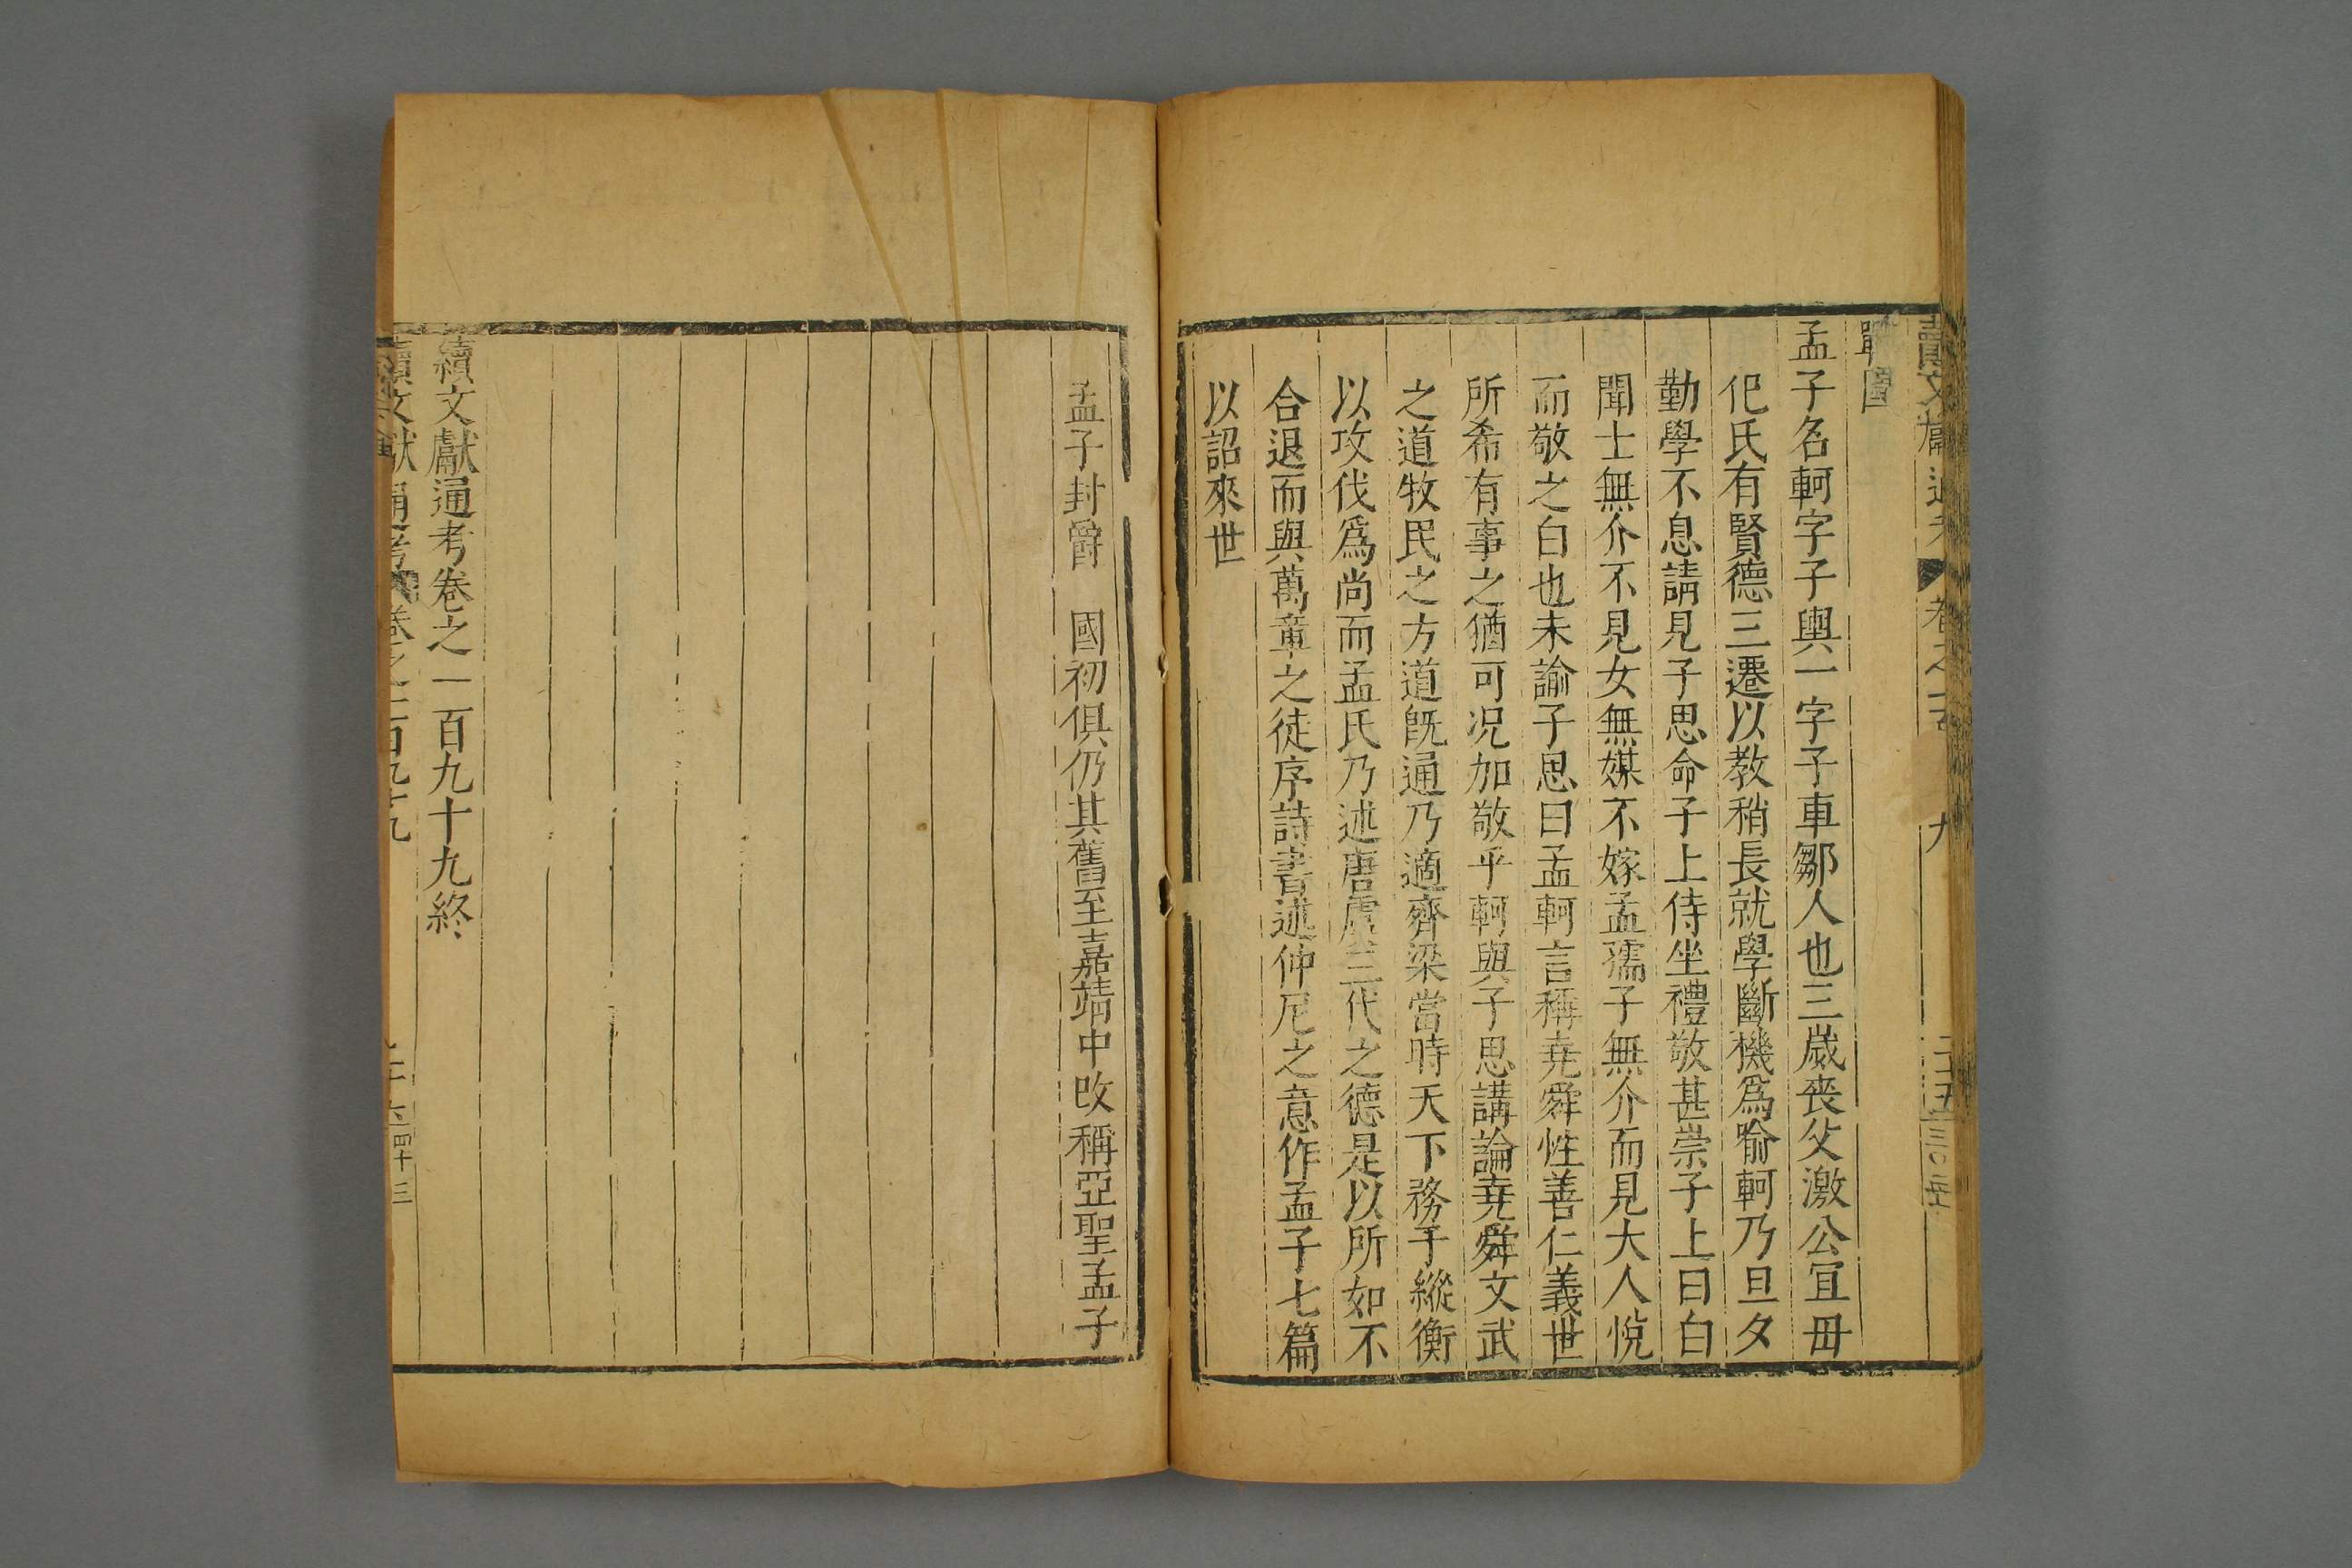 戰國
孟子名軻字子輿一字子車鄒人也三歲喪父激公宜毋
仉氏有賢德三遷以教稍長就學斷機爲喻軻乃旦夕
勤學不息請見子思命子上侍坐禮敬甚崇子上曰白
聞士無介不見女無媒不嫁孟孺子無介而見大人悅
而敬之白也未諭子思曰孟軻言稱堯舜性善仁義世
所希有事之猶可况加敬乎軻與子思講論堯舜文武
之道牧民之方道旣通乃適齊梁當時天下務于縱衡
以攻伐爲尚而孟氏乃述唐虞三代之德是以所如不
合退而與萬章之徒序詩書述仲尼之意作孟子七篇
以詔來世
孟子封爵 國初俱仍其舊至嘉靖中改稱亞聖孟子
續文獻通考卷之一百九十九終